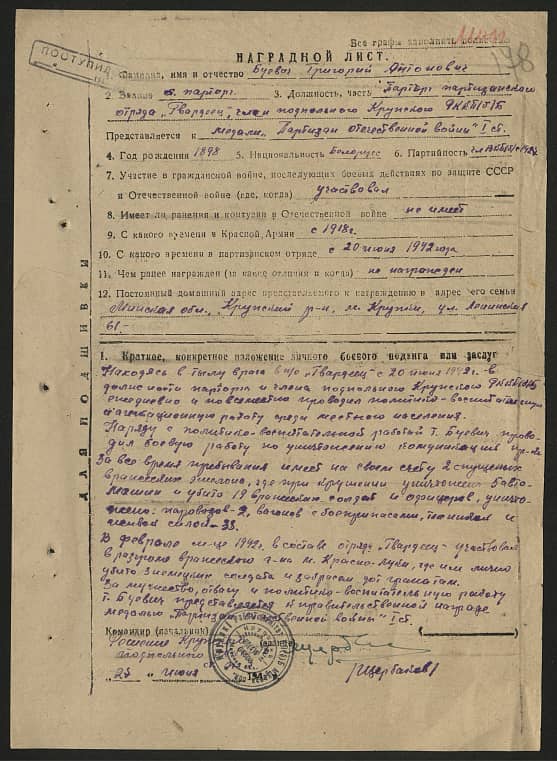 Все графы заполнять полностью
178
ПОСТУПИЛ
НАГРАДНОЙ ЛИСТ.
1. Фамилия, имя и отчество Буевич Григорий Антонович
2. Звание б. парторг 3. Должность, часть Парторг партизанского
отряда „Гвардеец“, член подпольного Крупского РК КП(б)Б
Представляется к медали „Партизан отечественной войны“ I ст.
4. Год рождения 1898 5. Национальность Белорус 6. Партийность чл ВКП(б)
7. Участие в гражданской войне, последующих боевых действиях по защите СССР
и Отечественной войне (где, когда) участвовал
8. Имеет ли ранения и контузии в Отечественной войне не имеет
9. С какого времени в Красной Армии с 1918г.
10. С какого времени в партизанском отряде с 20 июня 1942 года
11. Чем ранее награжден (за какие отличия и когда) не награжден
12. Постоянный домашний адрес представляемого к награждению и адрес его семьи
Минская обл., Крупский р-н, м. Крупки, ул. Ленинская
61.
ДЛЯ ПОДШИВКИ
1. Краткое, конкретное изложение личного боевого подвига или заслуг
Находясь в тылу врага в п/о „Гвардеец“ с 20 июня 1942г. в
должности парторга и члена подпольного Крупского РК КП(б)Б
ежедневно и повсеместно проводил политико-воспитательную
и агитационную работу среди местного населения.
Наряду с политико-воспитательной работой т. Буевич прово-
дил боевую работу по уничтожению коммуникаций пр-ка.
За все время пребывания имеет на своем счету 2 спущенных
вражеских эшелона, где при крушении уничтожено 6 авто-
машин и убито 19 вражеских солдат и офицеров, уничто-
жено: паровозов-2, вагонов с боеприпасами, техникой и
живой силой-33.
В феврале м-це 1942г. в составе отряда „Гвардеец“ участвовал
в разгроме вражеского г-на м. Красно-Лука, где им лично
убито 3 немецких солдата и забросан дот гранатами.
За мужество, отвагу и политико-воспитательную работу
т. Буевич представляется к правительственной награде
медалью „Партизан отечественной войны“ I ст.
Командир (начальник)
Решение
подпольного
„25“ июня 194
/Щербаков/